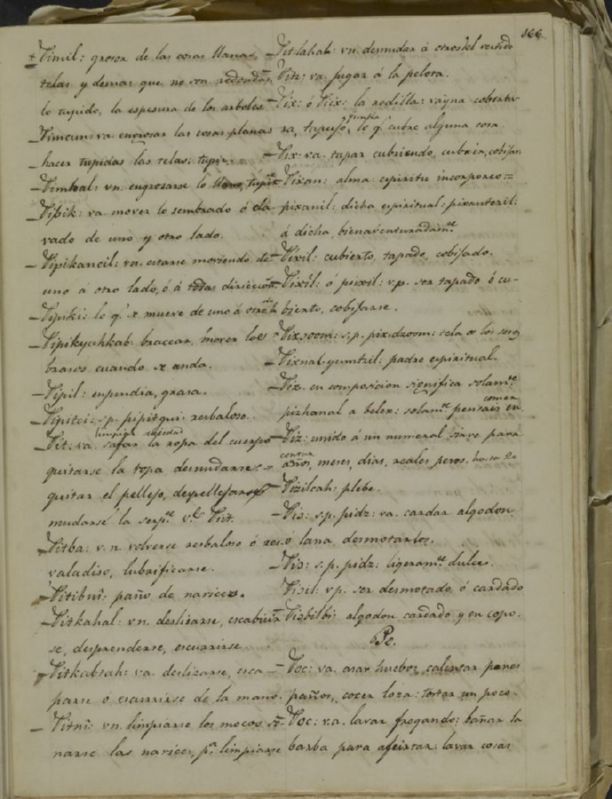 166
Pimil: grosor de las cosas llanas,
telas y demas que no son redondas
lo tupido, la espesura de los arboles
Pimcun: va engrosar las cosas planas
hacer tupidas las telas: tupir.
Pimhal: vn. engrosarse lo llano, tupirse
Pipik: va. mover lo sembrado ó cla
vado de uno y otro lado.
Pipikancil: va. estarse moviendo de
uno á otro lado, ó á todas direcciones
Pipiki: lo q.e se mueve de uno á otro
Pipikychkab: bracear, mover los
brazos cuando se anda.
Pipil: enjundia, grasa.
Pipitci: s.p. pipitqui resbaloso.
limpiar rasgadas
Pit: va. safar la ropa del cuerpo
quitarse la ropa desnudarse
quitar el pellejo, despellejarse
mudarse la serp.te v.e Pit.
Pitba: v.n. volverse resbaloso ó res
valadiso, lubrificarse.
Pitibni: paño de narices.
Pitkahal: vn. deslizarse, escabullirse
se, desprenderse, escurrirse.
Pitkabtah: va. deslizarse, esca
parse o escurrirse de la mano.
Pitni: vn. limpiarse los mocos
narse las narices, p.a limpiarse
Pitlahab: vn. desnudar á otro del vestido
Pitz: va. jugar á la pelota.
Pix: ó Piix: la rodilla: vayna cobertu
ra, lo q.e cubre alguna cosa
Pix. va. tapar cubriendo, cubrir, cobijar.
Pixan: alma espiritu incorporeo:=
pixanil: dicha espiritual: pixantzil:
á dicha, bienaventuradam.te
Pixil: cubierto, tapado, cobijado.
Pixil: ó pixil: v.p. ser tapado ó cu-
bierto, cobijarse.
Pixnal yumtzil: padre espiritual.
Piz. en composicion significa solam.te
comer
pizhanal a belex: solam.te pensais en
Piz: unido á un numeral sirve para
contar
años, meses, dias, reales pesos, hasta 20
Pizilcah: plebe.
Pis: s.p. pidz: va. cardar algodon
ó lana desmotarlos.
Pis: s.p. pidz. ligeram.te dulce.
vp. ser desmotado ó cardado
algodon cardado y en copo.
Po.
Poc: va. asar huevos, calentar panes
paños, cocer loza: tostar un poco.
Poc: va. lavar fregando: bañar la
barba para afeitar: lavar cosas